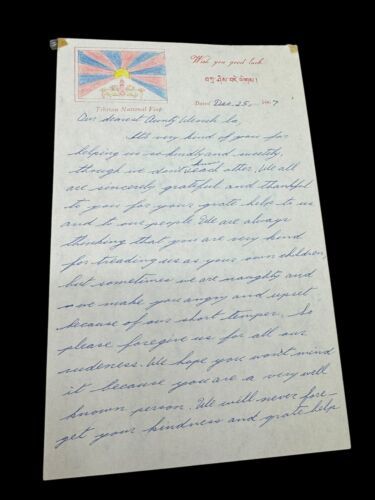 Wish you good luck
བཀྲ་ཤིས་བདེ་ལེགས།
Tibetan National Flag
Dated Dec. 25, 7
Our dearest Aunty
It's very kind of you for
helping us so kindly and sweetly,
through we don't know each other. We all
are sincerely grateful and thankful
to you for your grate help to us
and to our people. We are always
thinking that you are very kind
for treading us as your own children,
but sometimes we are naughty and
we make you angry and upset
because of our short temper. So
please foregive us for all our
rudeness. We hope you won't mind
it because you are a very well
known person. We will never fore-
get your kindness and grate help